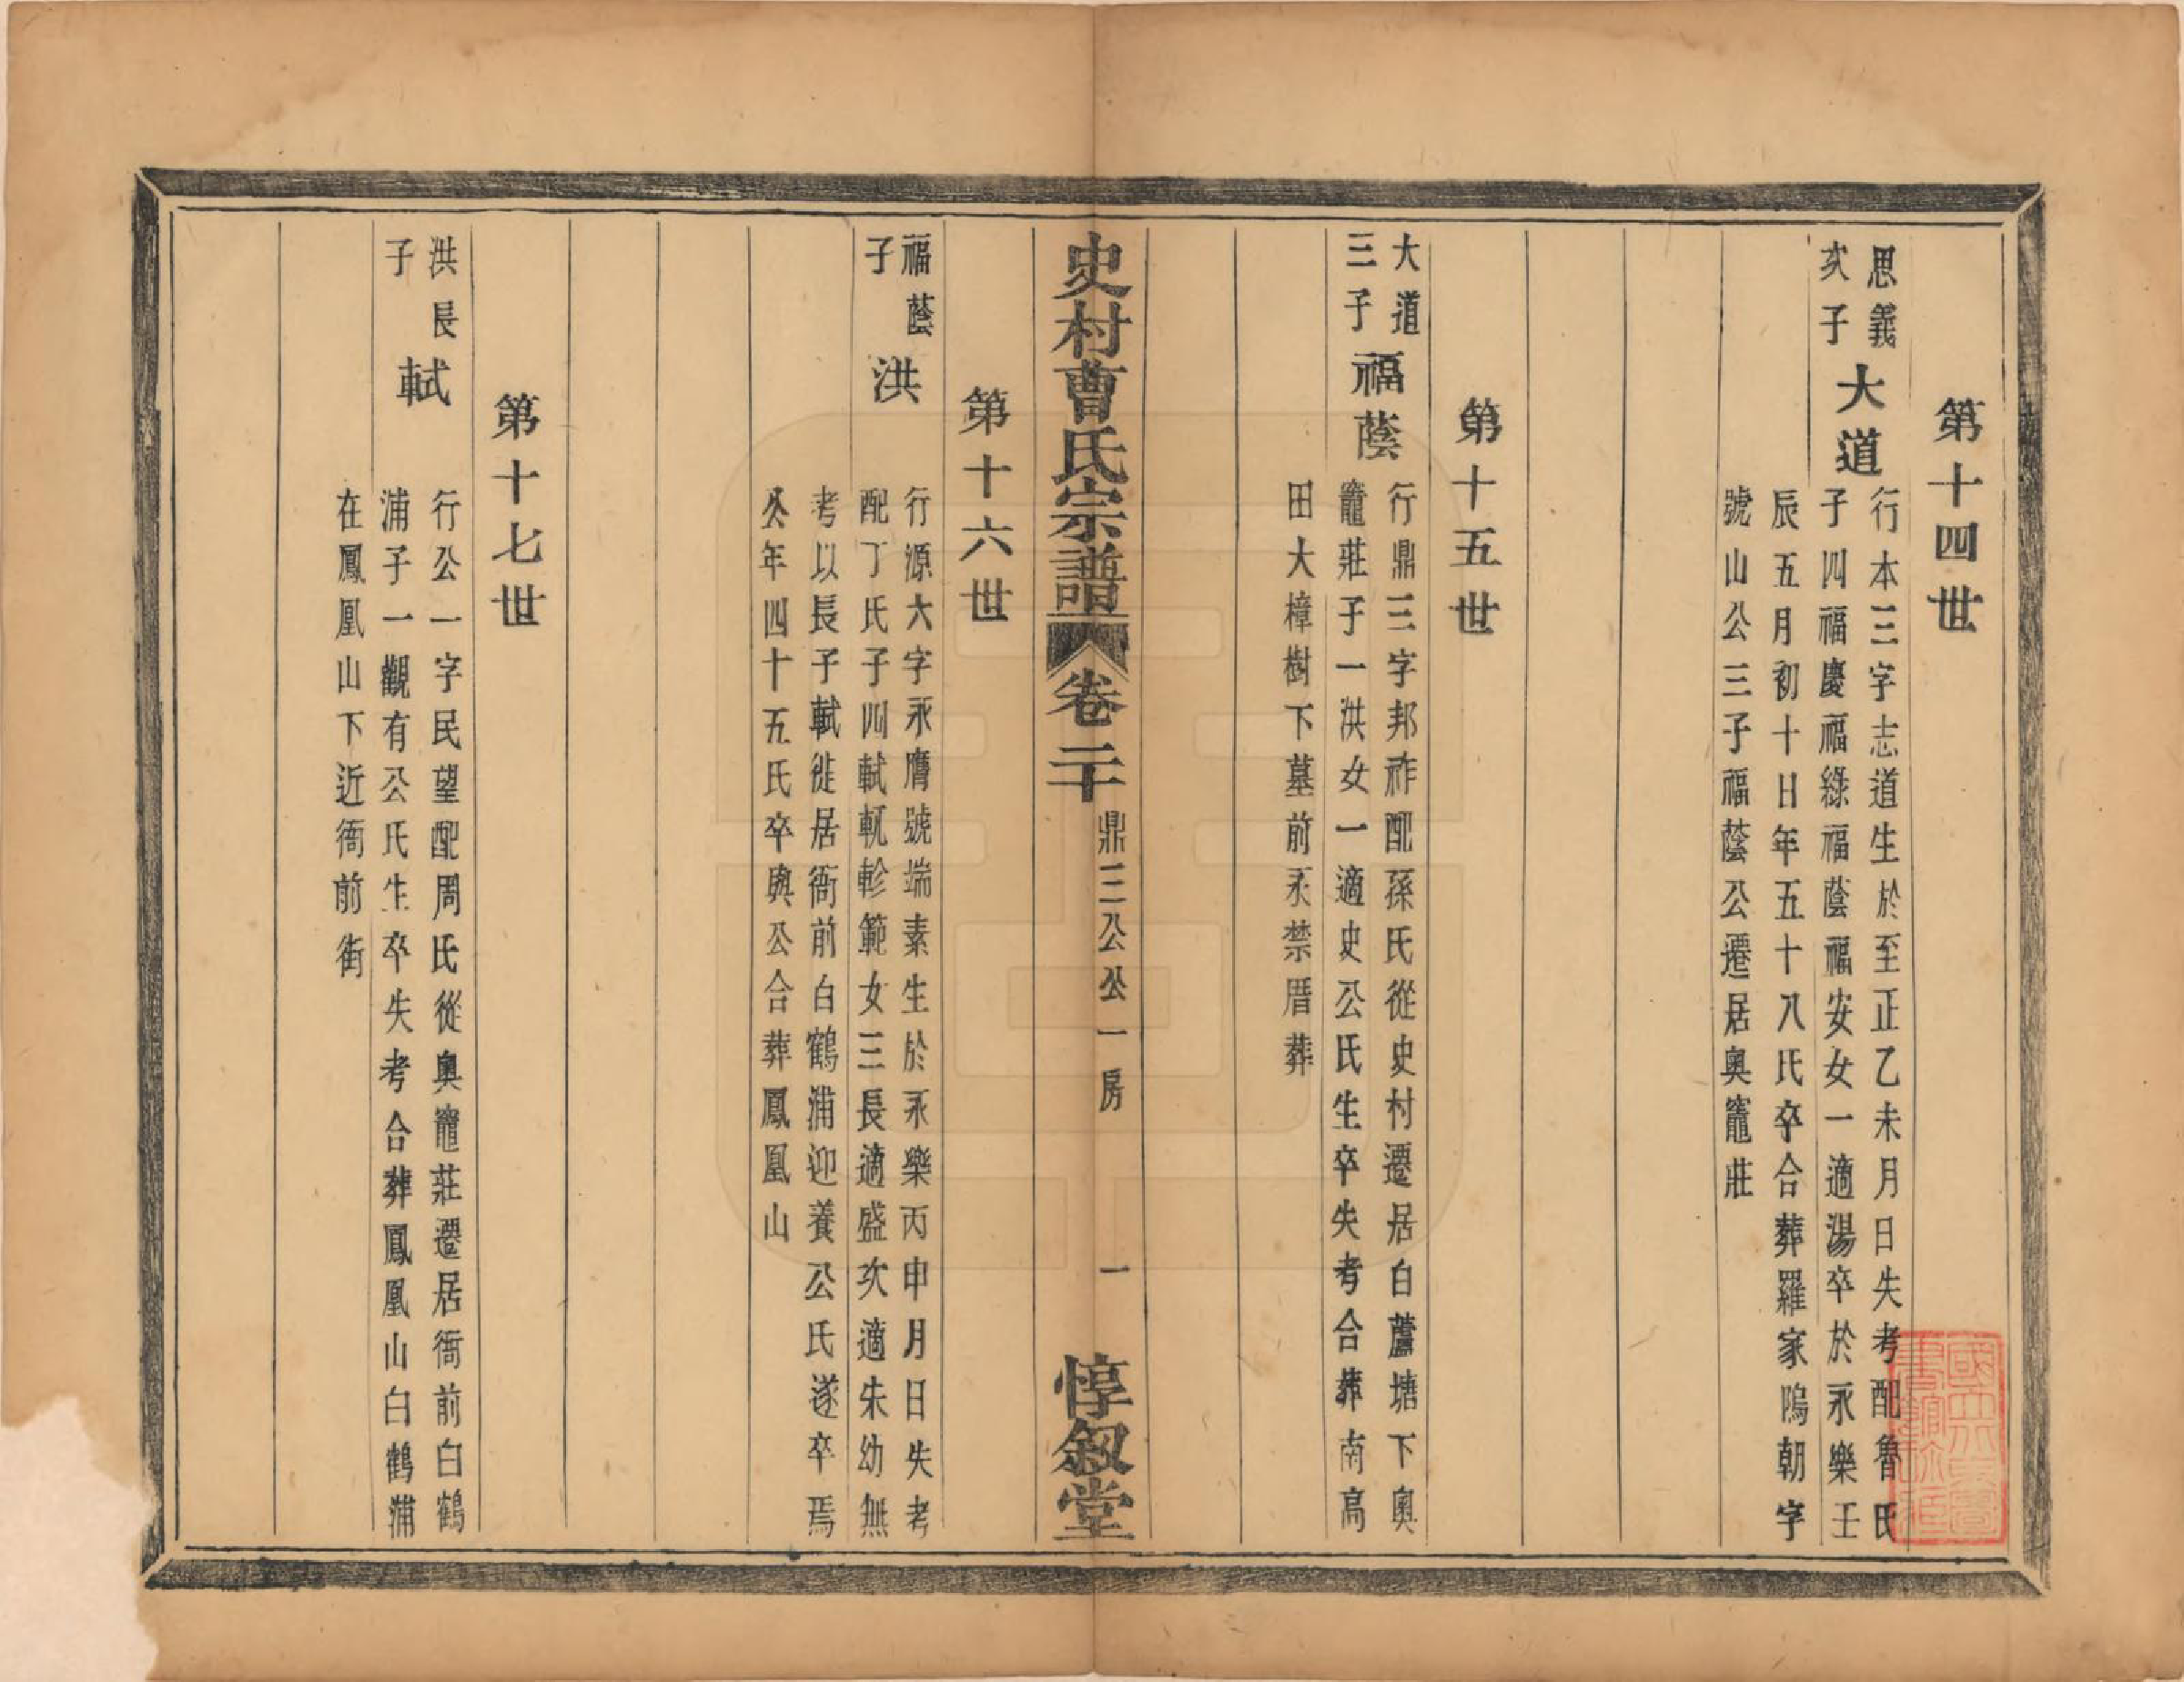 第十四世
思義
次子
大道
行本三字志道生於至正乙未月日失考配魯氏
子四福慶福綠福蔭福安女一適湯卒於永樂壬
辰五月初十日年五十八氏卒合葬羅家塢朝字
號山公三子福蔭公遷居奧竈莊
第十五世
大道
三子
福蔭
行鼎三字邦祚配孫氏從史村遷居白蘆塘下奧
竈莊子一洪女一適史公氏生卒失考合葬南高
田大樟樹下墓前永禁厝葬
史村曹氏宗譜
卷二十
鼎三公公一房
一
惇叙堂
第十六世
福蔭
子
洪
行源六字永膺號端素生於永樂丙申月日失考
配丁氏子四軾軏軫範女三長適盛次適朱幼無
考以長子軾徙居衙前白鶴浦迎養公氏遂卒焉
公年四十五氏卒與公合葬鳳凰山
第十七世
洪長
子
軾
行公一字民望配周氏從奧竈莊遷居衙前白鶴
浦子一觀有公氏生卒失考合葬鳳凰山白鶴浦
在鳳凰山下近衙前街